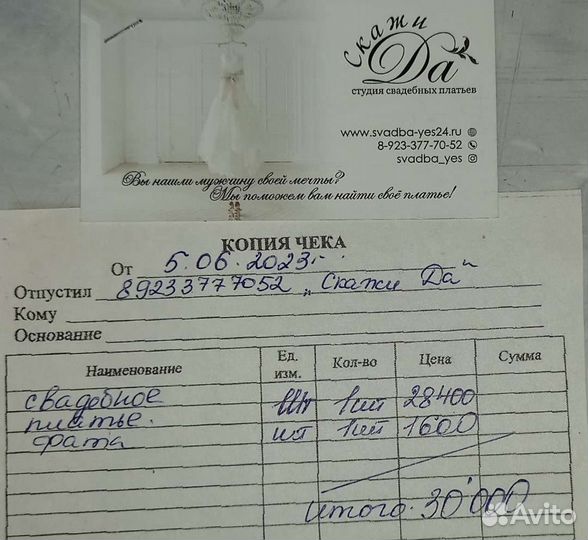 Скажи
Да
студия свадебных платьев
www.svadba-yes24.ru
8-923-377-70-52
svadba_yes
Вы нашли мужчину своей мечты?
Мы поможем вам найти своё платье!
КОПИЯ ЧЕКА
От 5.06.2023г.
Отпустил 89233777052 „Скажи Да“
Кому
Основание
Наименование Ед. изм. Кол-во Цена Сумма
свадебное шт 1шт 28400
платье.
фата шт 1шт 1600
итого. 30'000
Avito